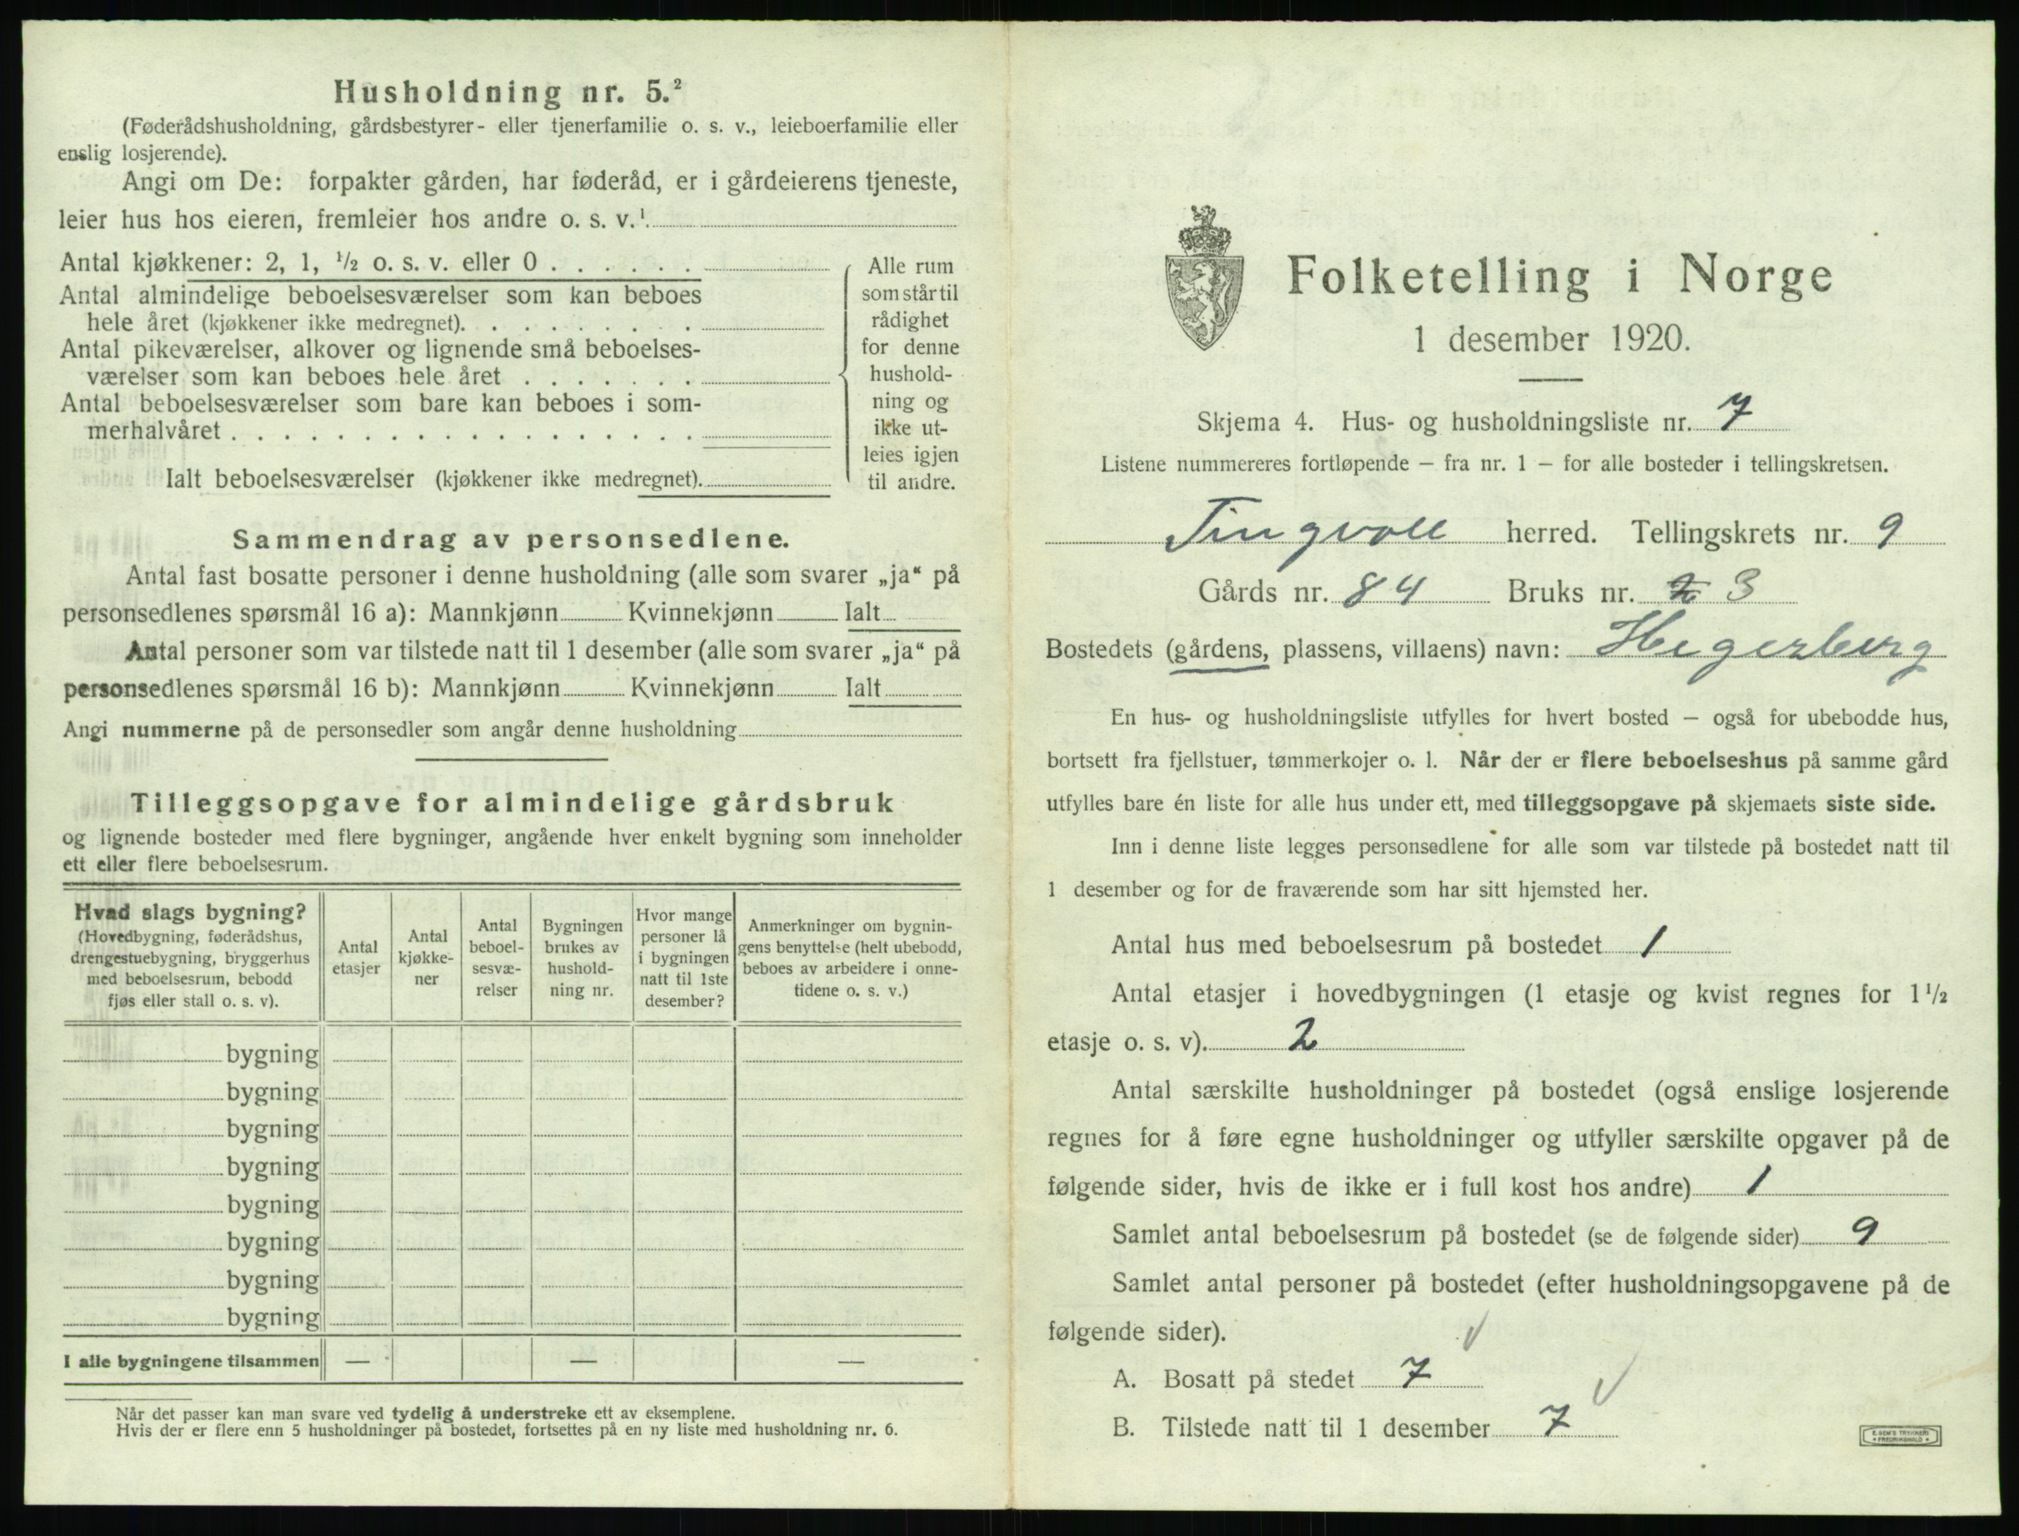 Husholdning nr. 5.²
(Føderådshusholdning, gårdsbestyrer- eller tjenerfamilie o. s. v., leieboerfamilie eller
enslig losjerende).
Angi om De: forpakter gården, har føderåd, er i gårdeierens tjeneste,
leier hus hos eieren, fremleier hos andre o. s. v.¹
Antal kjøkkener: 2, 1, ½ o. s. v. eller 0 . . . . . .
Antal almindelige beboelsesværelser som kan beboes
hele året (kjøkkener ikke medregnet). . . . . . . .
Antal pikeværelser, alkover og lignende små beboelses-
værelser som kan beboes hele året . . . . . . .
Antal beboelsesværelser som bare kan beboes i som-
merhalvåret . . . . . . . . . . . . . . . . . .
Ialt beboelsesværelser (kjøkkener ikke medregnet).
Alle rum
som står til
rådighet
for denne
hushold-
ning og
ikke ut-
leies igjen
til andre.
Sammendrag av personsedlene.
Antal fast bosatte personer i denne husholdning (alle som svarer „ja“ på
personsedlenes spørsmål 16 a): Mannkjønn Kvinnekjønn Ialt
Antal personer som var tilstede natt til 1 desember (alle som svarer „ja“ på
personsedlenes spørsmål 16 b): Mannkjønn Kvinnekjønn Ialt
Angi nummerne på de personsedler som angår denne husholdning
Tilleggsopgave for almindelige gårdsbruk
og lignende bosteder med flere bygninger, angående hver enkelt bygning som inneholder
ett eller flere beboelsesrum.
Hvad slags bygning?
(Hovedbygning, føderådshus,
drengestuebygning, bryggerhus
med beboelsesrum, bebodd
fjøs eller stall o. s. v).
Antal
etasjer
Antal
kjøkke-
ner
Antal
beboel-
sesvæ-
relser
Bygningen
brukes av
hushold-
ning nr.
Hvor mange
personer lå
i bygningen
natt til 1ste
desember?
Anmerkninger om bygnin-
gens benyttelse (helt ubebodd,
beboes av arbeidere i onne-
tidene o. s. v.)
bygning
bygning
bygning
bygning
bygning
bygning
bygning
bygning
I alle bygningene tilsammen — — —
Når det passer kan man svare ved tydelig å understreke ett av eksemplene.
Hvis der er flere enn 5 husholdninger på bostedet, fortsettes på en ny liste med husholdning nr. 6.
Folketelling i Norge
1 desember 1920.
Skjema 4. Hus- og husholdningsliste nr. 7
Listene nummereres fortløpende – fra nr. 1 – for alle bosteder i tellingskretsen.
Tingvoll herred. Tellingskrets nr. 9
Gårds nr. 84 Bruks nr. 2 3
Bostedets (gårdens, plassens, villaens) navn: Hegerberg
En hus- og husholdningsliste utfylles for hvert bosted – også for ubebodde hus,
bortsett fra fjellstuer, tømmerkojer o. l. Når der er flere beboelseshus på samme gård
utfylles bare én liste for alle hus under ett, med tilleggsopgave på skjemaets siste side.
Inn i denne liste legges personsedlene for alle som var tilstede på bostedet natt til
1 desember og for de fraværende som har sitt hjemsted her.
Antal hus med beboelsesrum på bostedet 1
Antal etasjer i hovedbygningen (1 etasje og kvist regnes for 1½
etasje o. s. v). 2
Antal særskilte husholdninger på bostedet (også enslige losjerende
regnes for å føre egne husholdninger og utfyller særskilte opgaver på de
følgende sider, hvis de ikke er i full kost hos andre) 1
Samlet antal beboelsesrum på bostedet (se de følgende sider) 9
Samlet antal personer på bostedet (efter husholdningsopgavene på de
følgende sider).
A. Bosatt på stedet 7
B. Tilstede natt til 1 desember 7
E. SEM'S TRYKKERI
FREDRIKSHALD